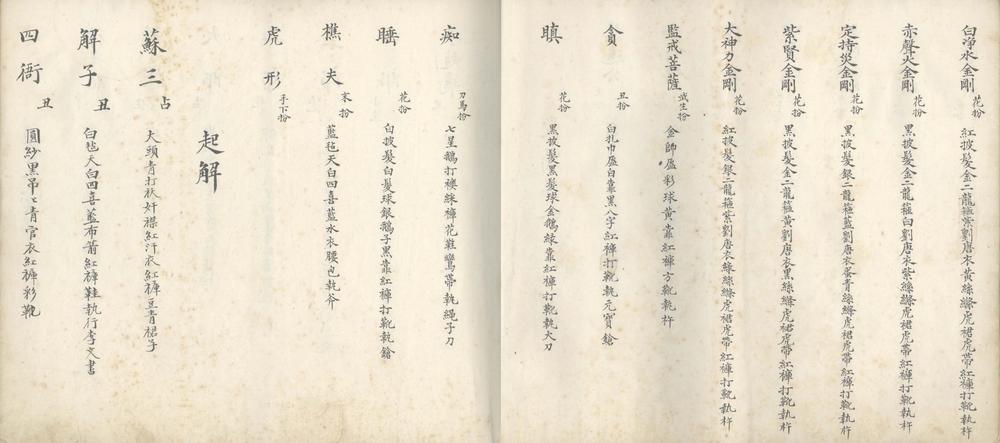 白净水金剛 花扮 紅披髮金二龍箍紫劉唐衣黃絲縧虎裙虎帶紅褲打靴執杵
赤聲火金剛 花扮 黑披髮金二龍箍白劉唐衣紫絲縧虎裙虎帶紅褲打靴執杵
定持災金剛 花扮 黑披髮銀二龍箍藍劉唐衣蛋青絲縧虎裙虎帶紅褲打靴執杵
紫賢金剛 花扮 黑披髮金二龍箍黃劉唐衣黑絲縧虎裙虎帶紅褲打靴執杵
大神力金剛 花扮 紅披髮銀二龍箍紫劉唐衣綠絲縧虎裙虎帶紅褲打靴執杵
監戒菩薩 武生扮 金帥盔彩球黃靠紅褲方靴執杵
貪 丑扮 白扎巾盔白靠黑八字紅褲打靴執元寶鎗
瞋 花扮 黑披髮黑髮球金鵝綠靠紅褲打靴執大刀
痴 刀馬扮 七星鵝打褛綵褲花鞋鸞帶執繩子刀
睡 花扮 白披髮白髮球銀鵝子黑靠紅褲打靴執鎗
樵夫 末扮 藍毡天白四喜藍水衣腰包執斧
虎形 手下扮
起解
蘇三 占 大頭青打衩奸襟紅汗衣紅褲豆青裙子
解子 丑 白毡天白四喜藍布箭紅褲鞋執行李文書
四衙 丑 圓紗黑吊乀青官衣紅褲彩靴